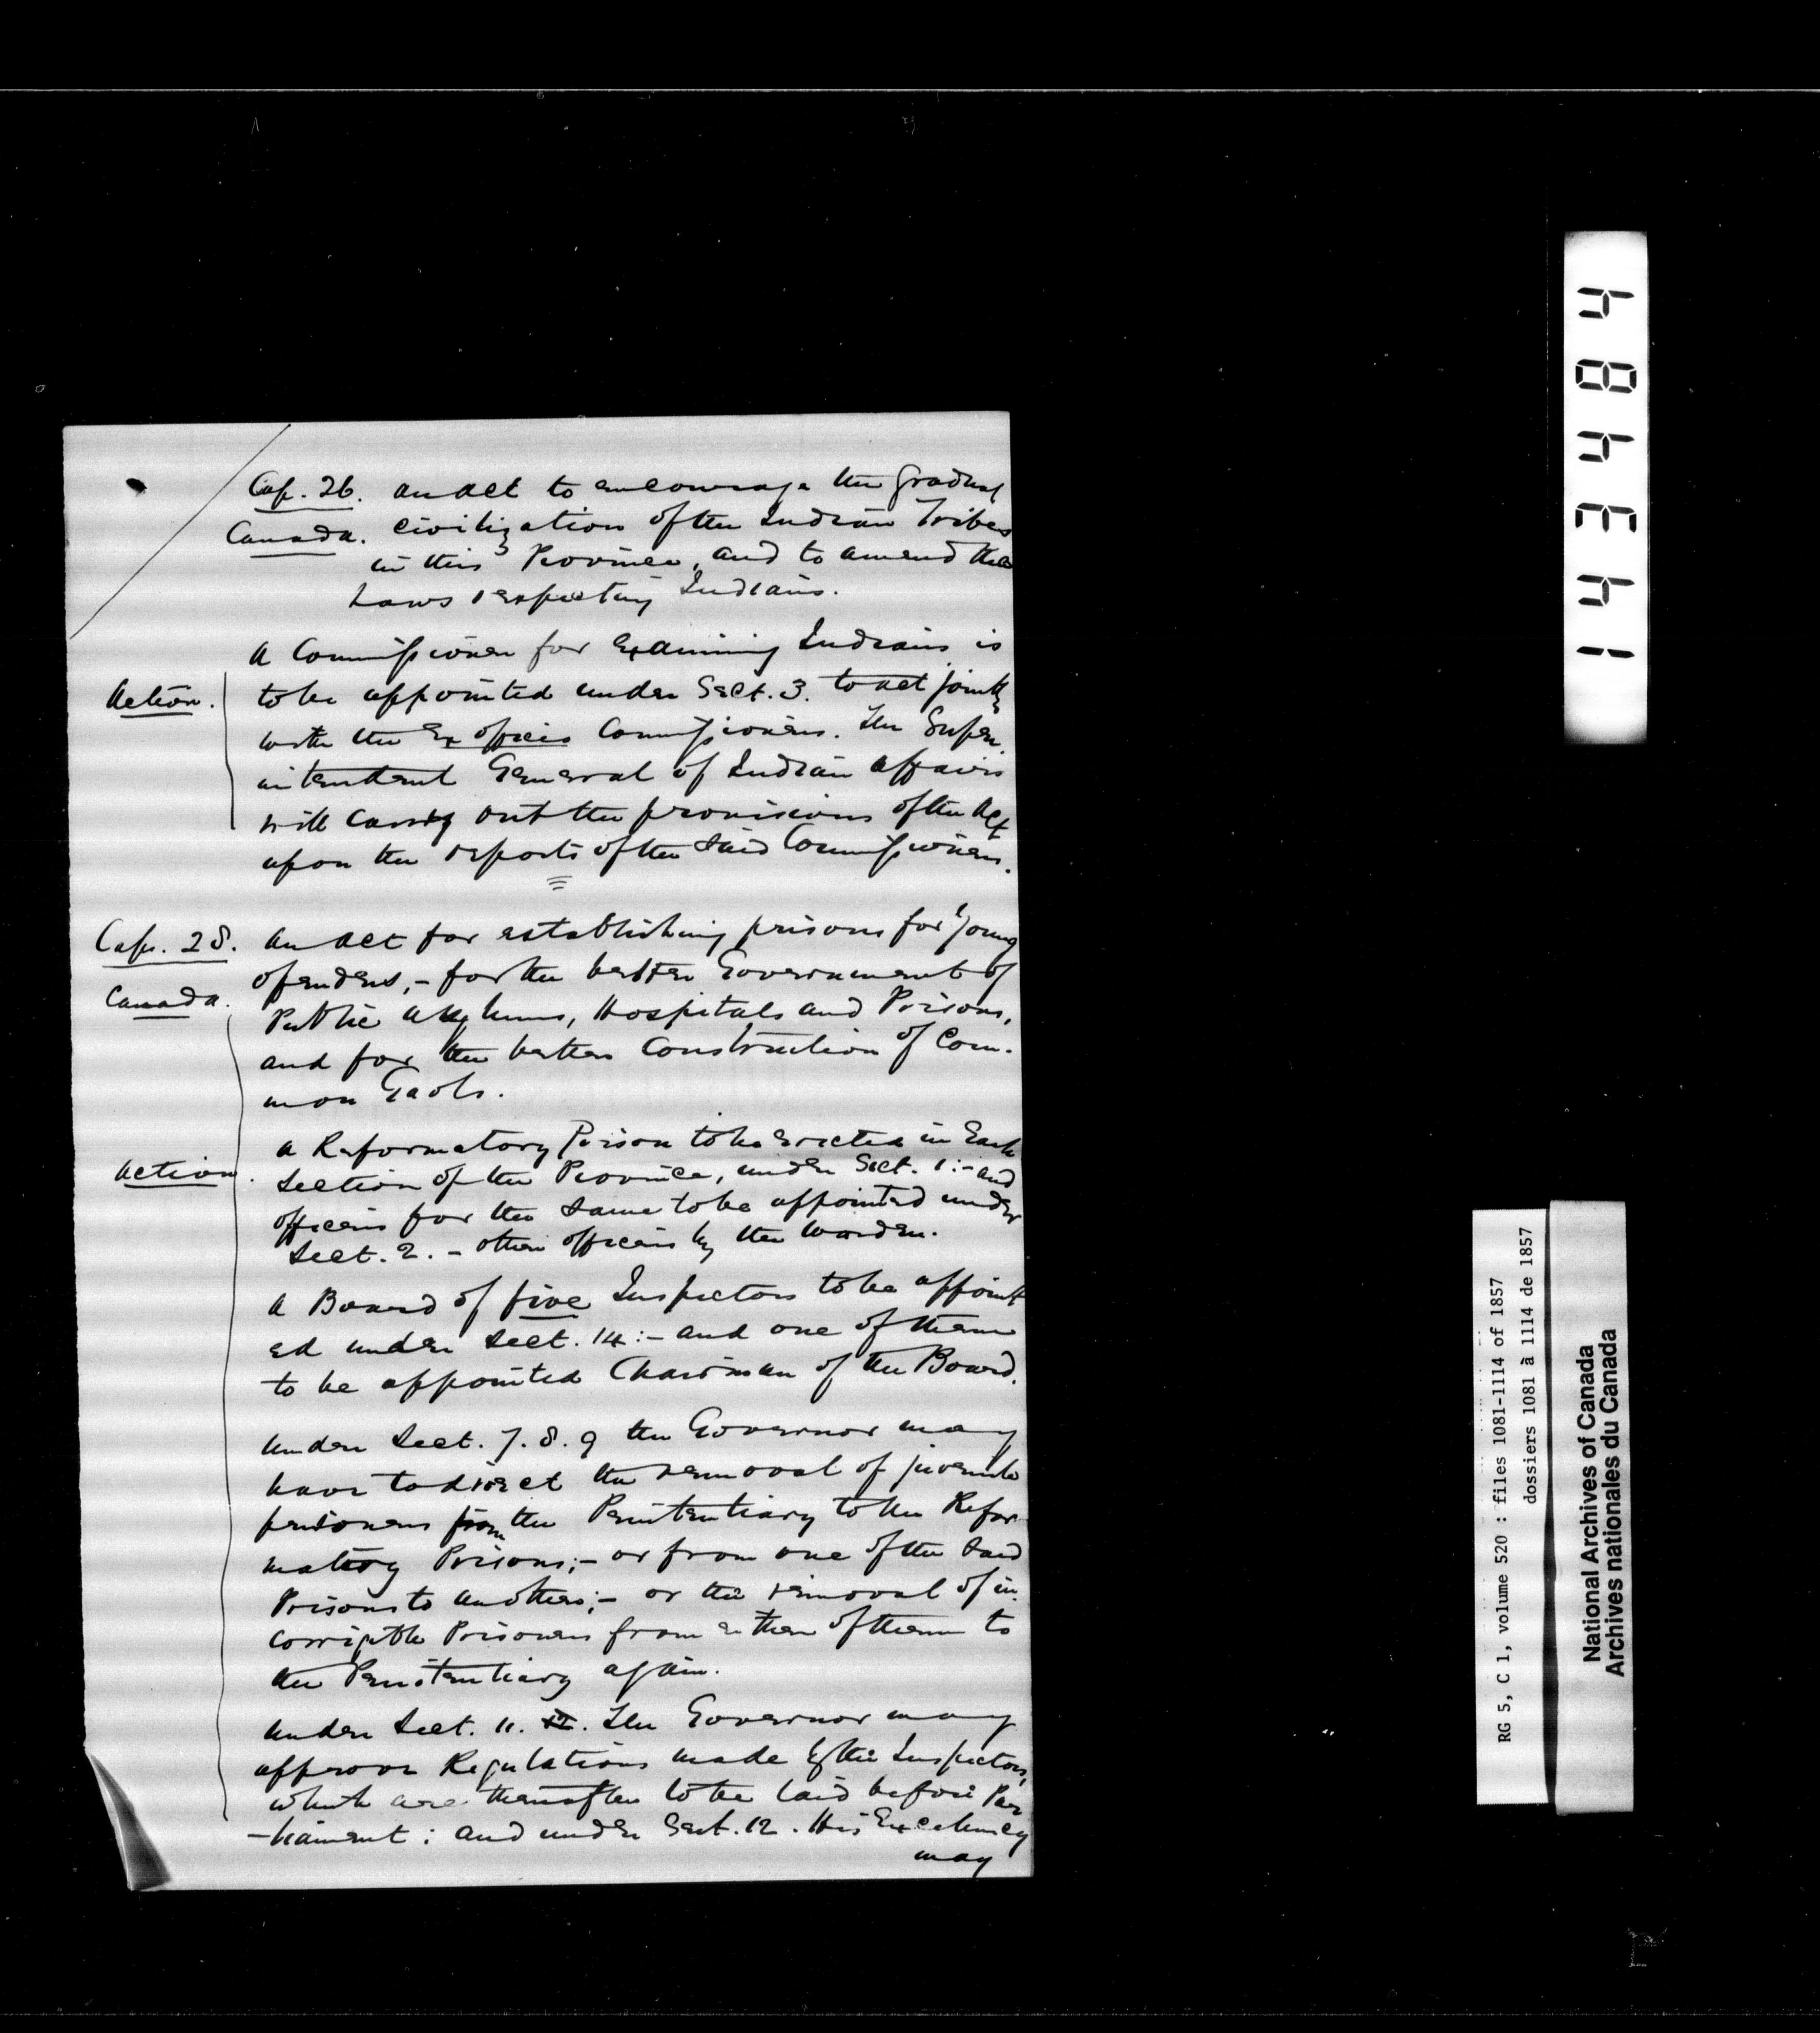 Cap. 26. An Act to encourage the gradual
Canada. civilization of the Indian Tribes
in this Province, and to amend the
Laws respecting Indians.
A Commissioner for Examining Indians is
Action. to be appointed under Sect. 3. to act jointly
with the Ex officio Commissioners. The Super-
intendent General of Indian Affairs
will carry out the provisions of the Act
upon the reports of the said Commissioners.
Cap. 28. An Act for establishing prisons for young
offenders, - for the better Government of
Canada. Public Asylums, Hospitals and Prisons,
and for the better Construction of Com-
mon Gaols.
A Reformatory Prison to be erected in Each
Action. Section of the Province, under Sect. 1:- and
officers for the same to be appointed under
Sect. 2. - other officers by the Warden.
A Board of five Inspectors to be appoint
ed under Sect. 14:- and one of them
to be appointed Chairman of the Board.
Under Sect. 7. 8. 9 the Governor may
have to direct the removal of juvenile
prisoners from the Penitentiary to the Refor-
matory Prisons;- or from one of the said
Prisons to another;- or the removal of in-
corrigible Prisoners from either of them to
the Penitentiary again.
Under Sect. 11. 12. The Governor may
approve Regulations made by the Inspectors,
which are thereafter to be laid before Par
-liament: and under Sect. 12. His Excellency
may
143484
RG 5, C 1, volume 520 : files 1081-1114 of 1857
dossiers 1081 à 1114 de 1857
National Archives of Canada
Archives nationales du Canada